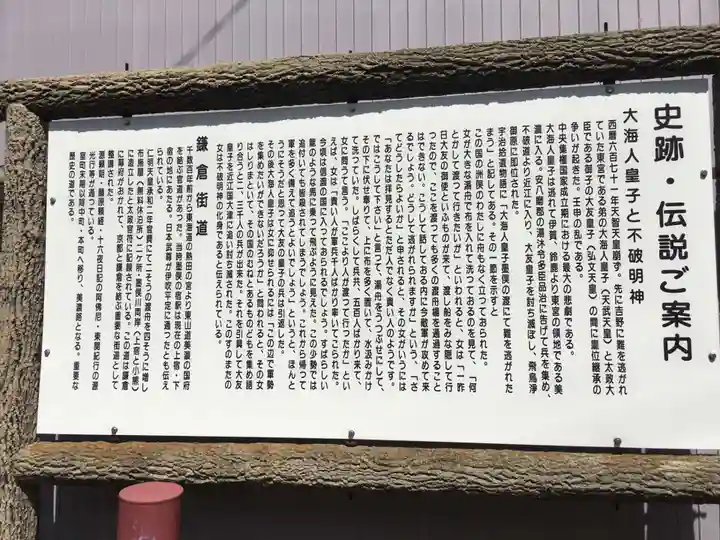 史跡・伝説ご案内
大海人皇子と不破明神
西暦六百七十一年天智天皇崩ず。先に吉野に難を逃がれ
ていた東宮である弟の大海人皇子（天武天皇）と太政大
臣である御子の大友皇子（弘文天皇）の間に皇位継承の
争いが起きた。壬申の乱である。
中央集権国家成立期における最大の悲劇である。
大海人皇子は逃れて伊賀、鈴鹿より東宮の領地である美
濃に入る。安八磨郡の湯沐令多臣品治に告げて兵を集め、
不破道より近江に入り、大友皇子を討ち滅ぼし、飛鳥浄
御原に即位された。
宇治拾遺物語に、大海人皇子墨俣の渡にて難を逃がれた
まうと記してある。その一節を示すと
この国の洲俣のわたしに舟もなく立っておられた。
女が大きな湯舟で布を入れて洗っておるのを見て、「何
とかして渡って行きたいが」といわれると、女は「一昨
日大友の御使というものが来て、渡し船をみな隠して行
ったので、ここを渡っても多くの渡舟場を通過すること
はできない。こうやって話しておる内に今敵軍が攻めて来
るでしょう。どうして逃がれられますか」という、「さ
てどうしたらよいか」と申されると、その女がいうには
「あなたは拝見するとただ人でなく貴い人のようです。
ではこうして下さい」と言って、湯舟をうつぶせにして、
その下に伏せ奉りて、上に布を多く置いて、水汲みかけ
て洗っていた。しばらくして兵共、五百人ばかり来て、
女に問うて言う。「ここより人が渡って行ったか」とい
えば、女は「貴い人が軍兵千人ばかり率いてこられた。
今頃は信濃国に入っておられるでしょう。すばらしい
龍のような馬に乗って飛ぶように見えた。この少勢では
追付いても皆殺されてしまうでしょう。これから帰って
軍を多く備えて追うとよいでしょう」というと、ほんと
うにそうだと思って大友の皇子の兵は引返した。
その後大海人皇子は女に仰せられるには「この辺で軍勢
を集めたいができないだろうか」と問われると、その女
はしりまどいて、その国のむねとあるものどもを集め語
り合うと、二、三千人の兵が出来た。それを引具して大友
皇子を近江国大津に追い討ち滅された。このすのまたの
女は不破明神の化身であると伝えられている。
鎌倉街道
千数百年前から東海道の熱田の宮より東山道美濃の国府
を結ぶ官道があった。当時墨俣の宿駅は現在の上宿・下
宿の南にあたる。日本武尊が伊吹平定に通ったとも伝え
られている。
仁明天皇承和二年官費にて二そうの渡舟を四そうに増し
布施屋（無料宿泊所）二ヶ所・墨俣川両岸（上宿と小熊）
に造立した と太政官符に記録されている。この道は鎌倉
に幕府がおかれて、京都と鎌倉を結ぶ重要な街道として
整備された。
源頼朝・藤原頼経・十六夜日記の阿佛尼・東関紀行の源
光行等が通っている。
室町末期以降中町・本町へ移り、美濃路となる。重要な
歴史の道である。